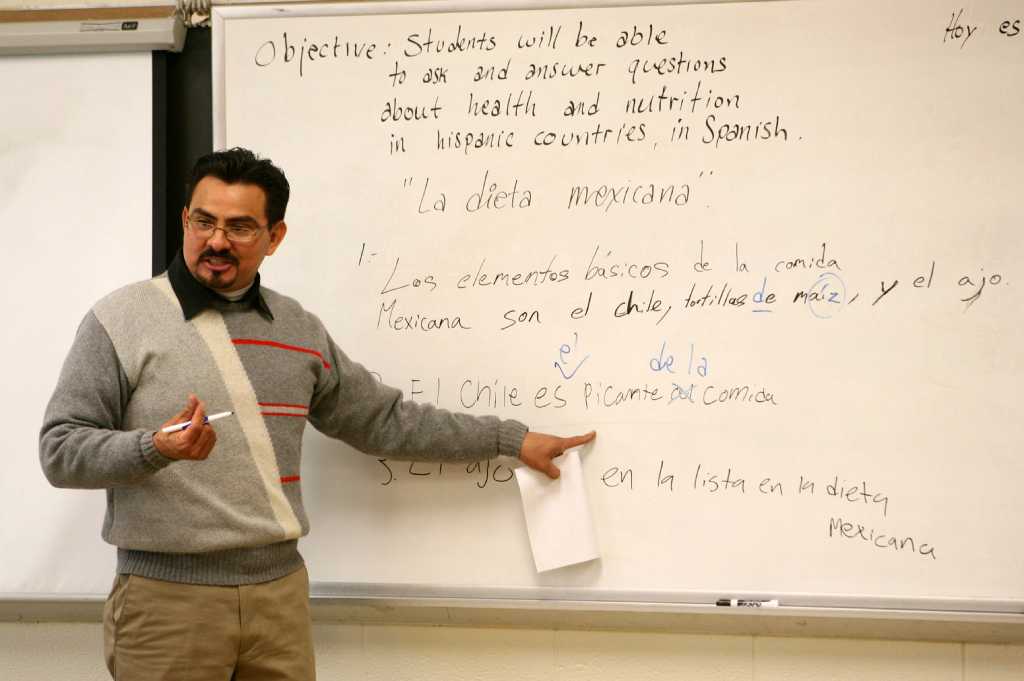 Hoy es
Objective: Students will be able
to ask and answer questions
about health and nutrition
in hispanic countries, in Spanish.
"La dieta mexicana".
1.- Los elementos básicos de la comida
Mexicana son el chile, tortillas de maíz, y el ajo.
el de la
El Chile es picante comida
3. El ajo en la lista en la dieta
Mexicana